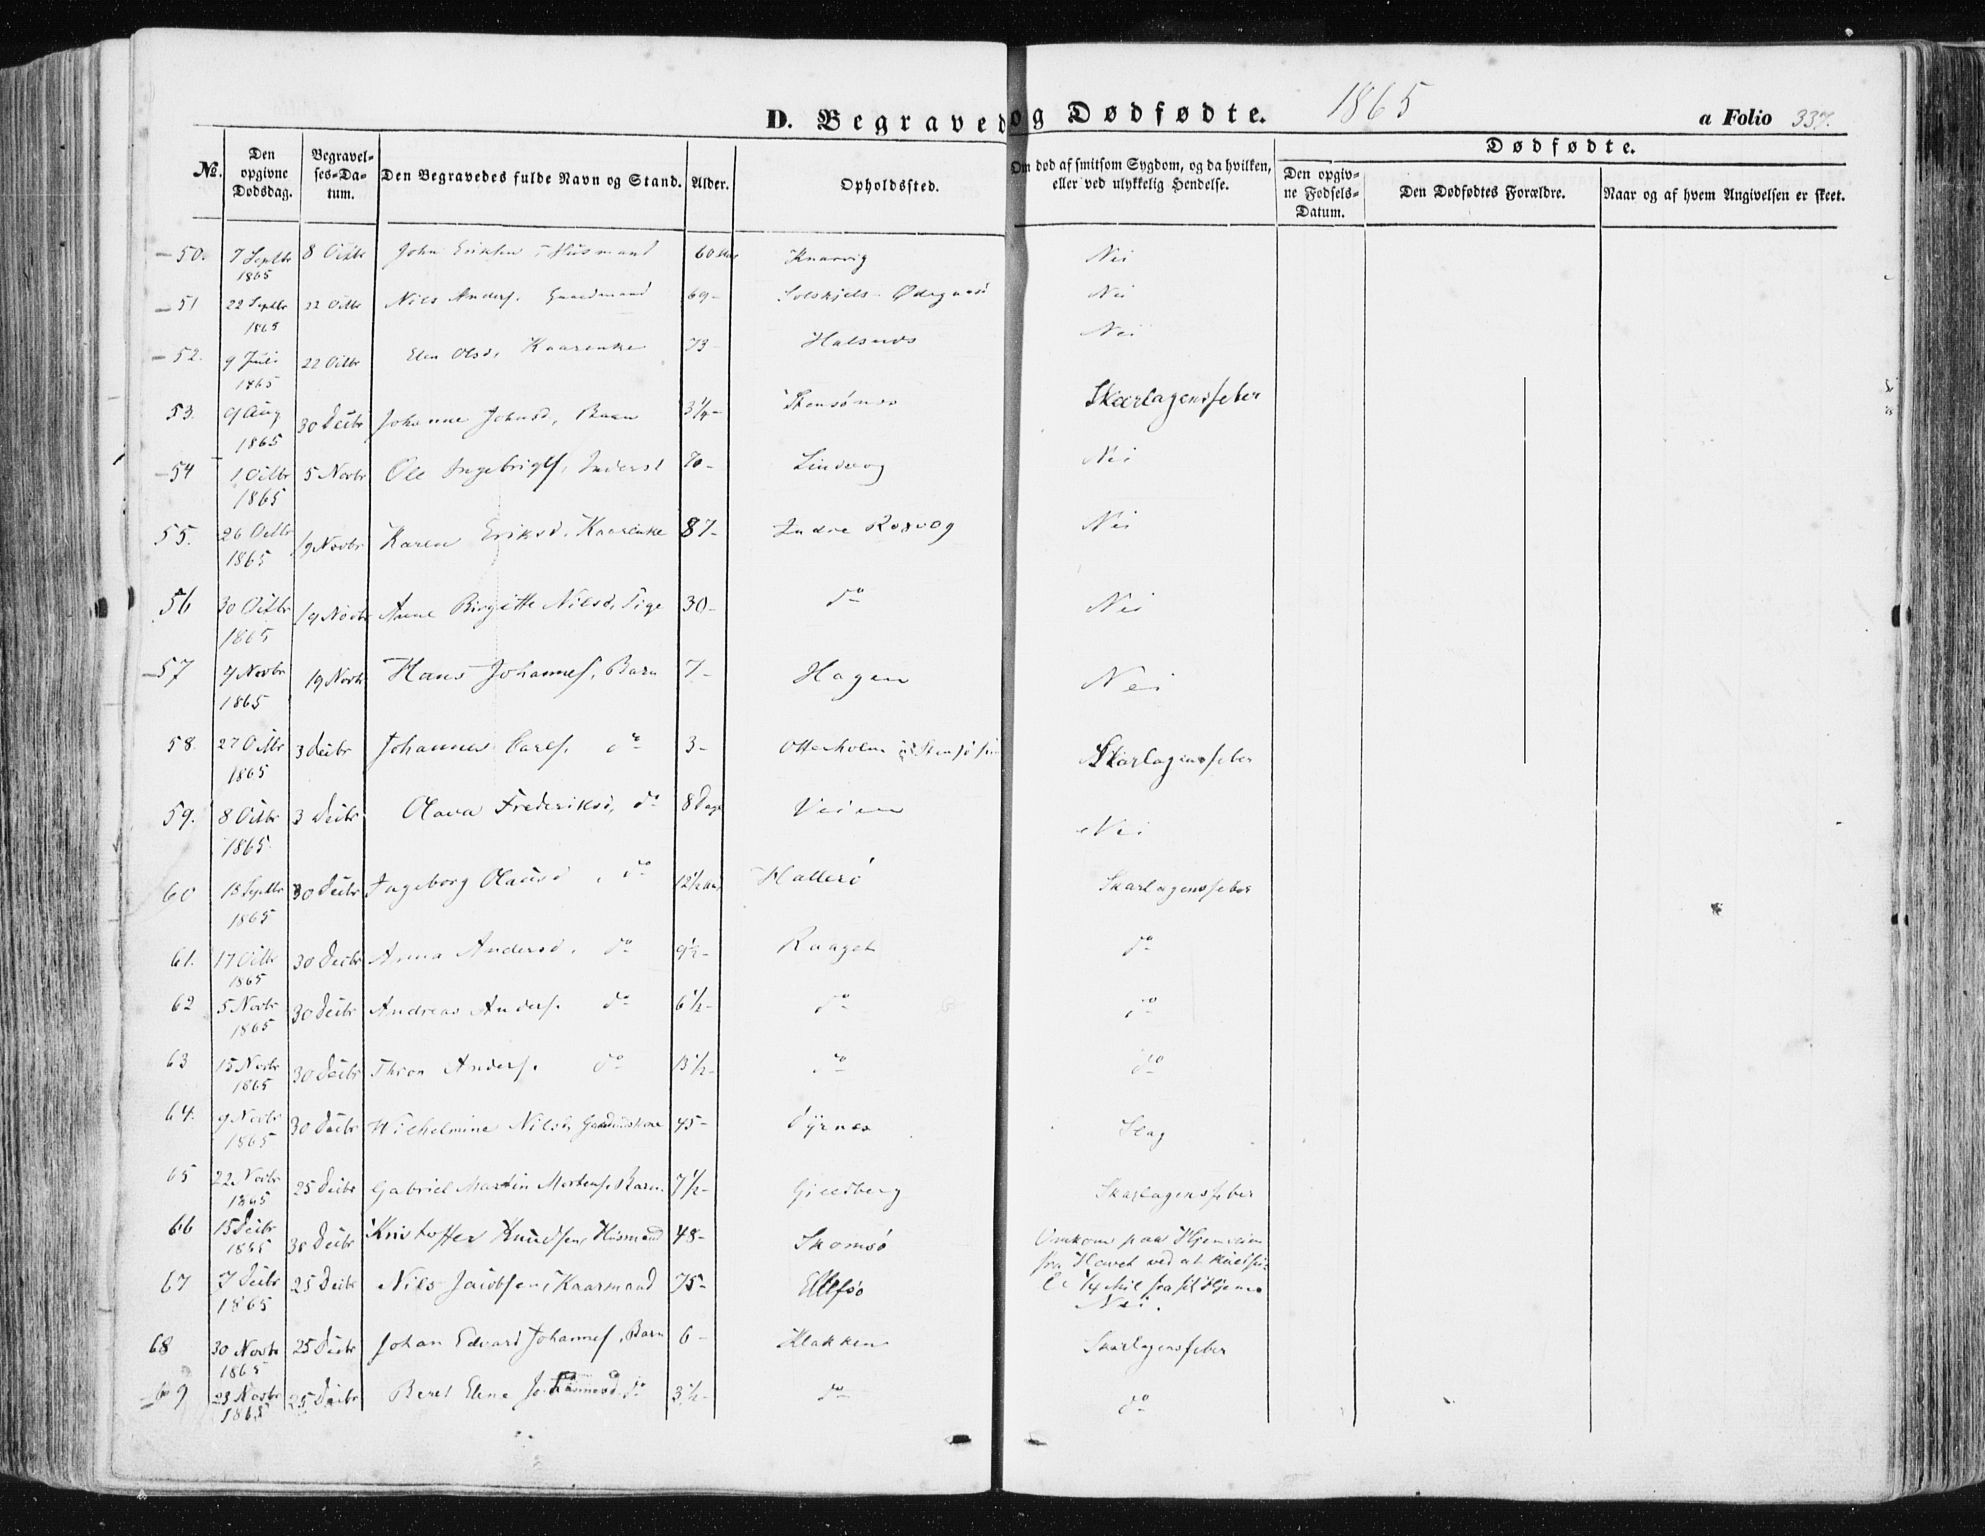 D. Begravede og Dødfødte. 1865 a Folio 337.
No. Den opgivne Dødsdag. Begravelses-Datum. Den Begravedes fulde Navn og Stand. Alder. Opholdssted. Om død af smitsom Sygdom, og da hvilken, eller ved ulykkelig Hendelse. Dødfødte.
Den opgivne Fødsels-Datum. Den Dødfødtes Forældre. Naar og af hvem Angivelsen er skeet.
50. 7 Septbr 1865 8 Octbr John Eriksen, Husmand 60 Nei
51 22 Septbr 1865 22 Octbr Nils Anders. Gaardmand 69- Nei
52. 9 Juli 1865 22 Octbr Elen Olsd, Kaarenke 73- Halsnes Nei
53. 9 Aug 1865 30 Decbr Johanne Johnsd, Barn 3 1/4- Skarlagensfeber
54 1 Octbr 1865 5 Novbr Ole Ingebrigts, Inderst 70- Nei
55. 26 Octbr 1865 19 Novbr Karen Eriksd. Kaarenke 87- Indre Rosvog Nei
56 30 Octbr 1865 19 Novbr Anne Birgitte Nilsd, Pige 30- do Nei
57 4 Novbr 1865 19 Novbr Hans Johannes, Barn 7- Hagen Nei
58. 27 Octbr 1865 3 Decbr Johannes Carls. do 3- Otterholm Skarlagensfeber
59. 8 Octbr 1865 3 Decbr Olava Frederiksd, do 8 Dage Veien Nei
60 13 Septbr 1865 30 Decbr Ingeborg Olausd, do 12 1/2 Hallerö Skarlagensfeber
61. 17 Octbr 1865 30 Decbr Anna Andersd. do 9 1/2- do
62 5 Novbr 1865 30 Decbr Andreas Anders. do 6 1/2- do do
63 15 Novbr 1865 30 Decbr Anders. do 13 1/2- do do
64. 9 Novbr 1865 30 Decbr Wilhelmine Nilsd, 45- Dyrnes Slag
65 22 Novbr 1865 25 Decbr Gabriel Martin Mortens. Barn 7 1/2- Skarlagensfeber
66 15 Decbr 1865 30 Decbr Kristoffer Knudsen, Husmand 48- Skomsö Omkom paa Hjemveien
fra Havet ved at
1/4 Mil fra sit Hjem
67 7 Decbr 1865 25 Decbr Nils Jacobsen, Kaarmand 75- Nei.
68 30 Novbr 1865 25 Decbr Johan Edvard Johannes, Barn 6- Klakken Skarlagensfeber
69 23 Novbr 1865 25 Decbr Beret Elene do 3 1/2- do do